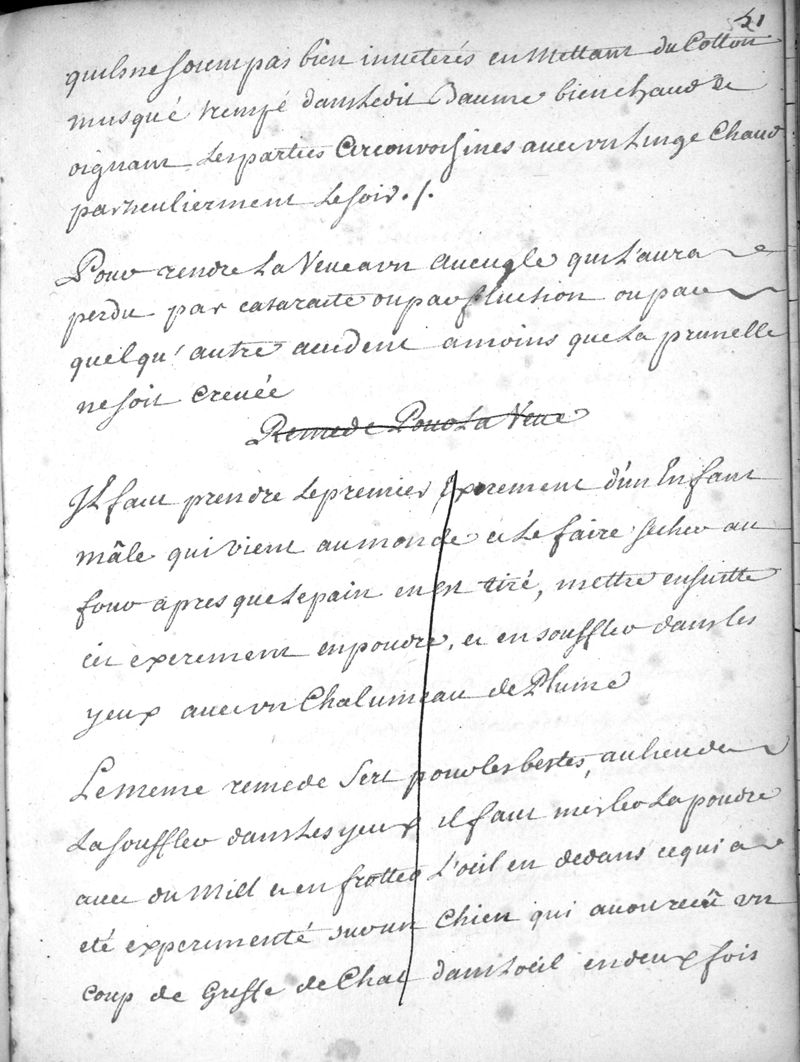 51
quils ne soient pas bien inveterés en Mettant du Cotton
musqué trempé dans Ledit Baume bien chaud &
oignant Les parties Circonvoisines avec un Linge Chaud
particulierment Le soir ./.
Pour rendre La Veue a un Aveugle qui L'aura
perdu par cataracte ou par fluction ou par
quelqu'autre accident a moins que La prunelle
ne soit crevée
Remede Pour La Veue
Il faut prendre Le premier Excrement d'un Enfant
mâle qui vient au monde et Le faire secher au
four apres que Le pain en est tiré, mettre ensuitte
cet excrement en poudre, et en souffler dans les
yeux avec un Chalumeau de Plume
Le meme remede sert pour les bestes, au lieu de
La souffler dans Les yeux il faut mesler La poudre
avec du Miel et en frotter L'oeil en dedans ce qui a
eté experimenté sur un Chien qui avoit receû un
coup de Griffe de Chat dans L'oeil en deux fois